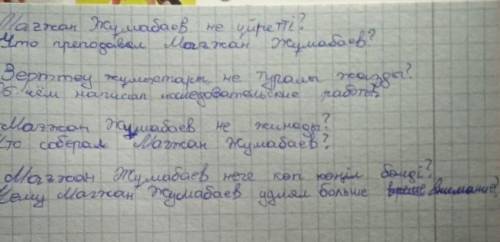 Мағжан Жұмабаев не үйретті?
Что преподавал Магжан Жумабаев?
Зерттеу жұмыстары не туралы жазды?
О чём написал исследовательские работы?
Мағжан Жұмабаев не жинады?
Что собирал Магжан Жумабаев?
Мағжан Жұмабаев неге көп көңіл бөлді?
Чему Магжан Жумабаев уделял больше внимание?